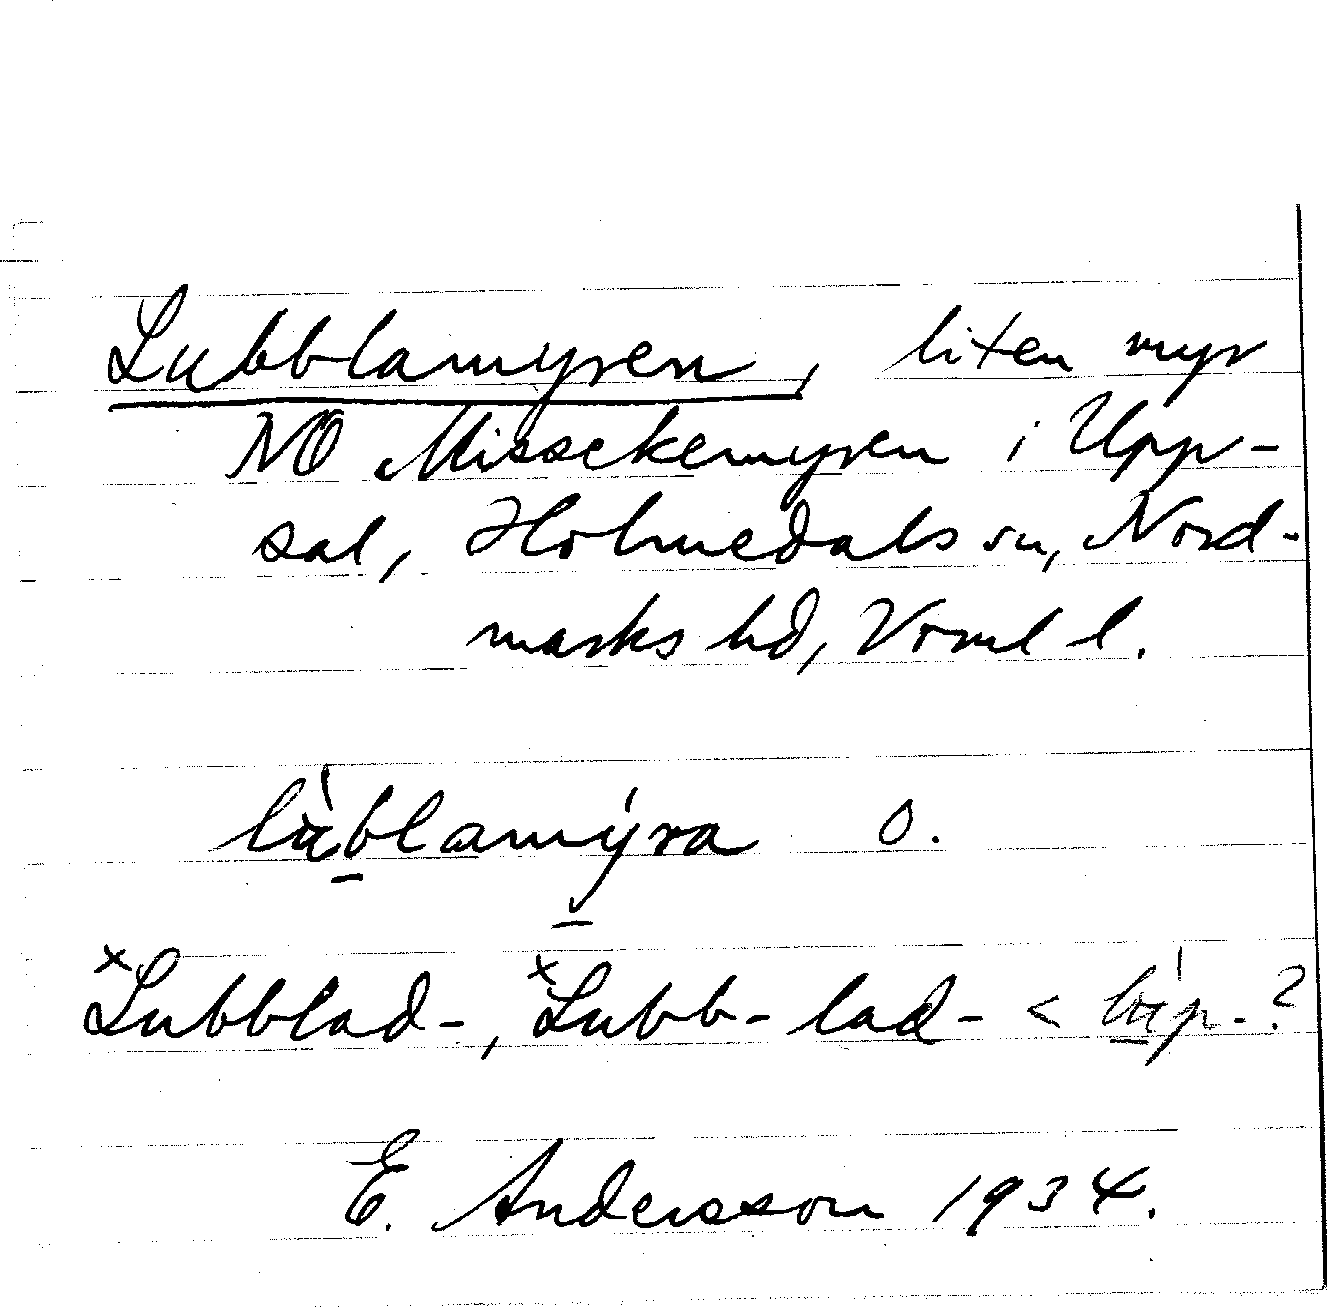 Lubblamyren, liten myr
NO Missekemyren i Upp-
sal, Holmedals sn, Nord-
marks hd, Vrml l.
lùblamýra o.
ˣLubblad-, ˣLubb-lad- <
E. Andersson 1934.